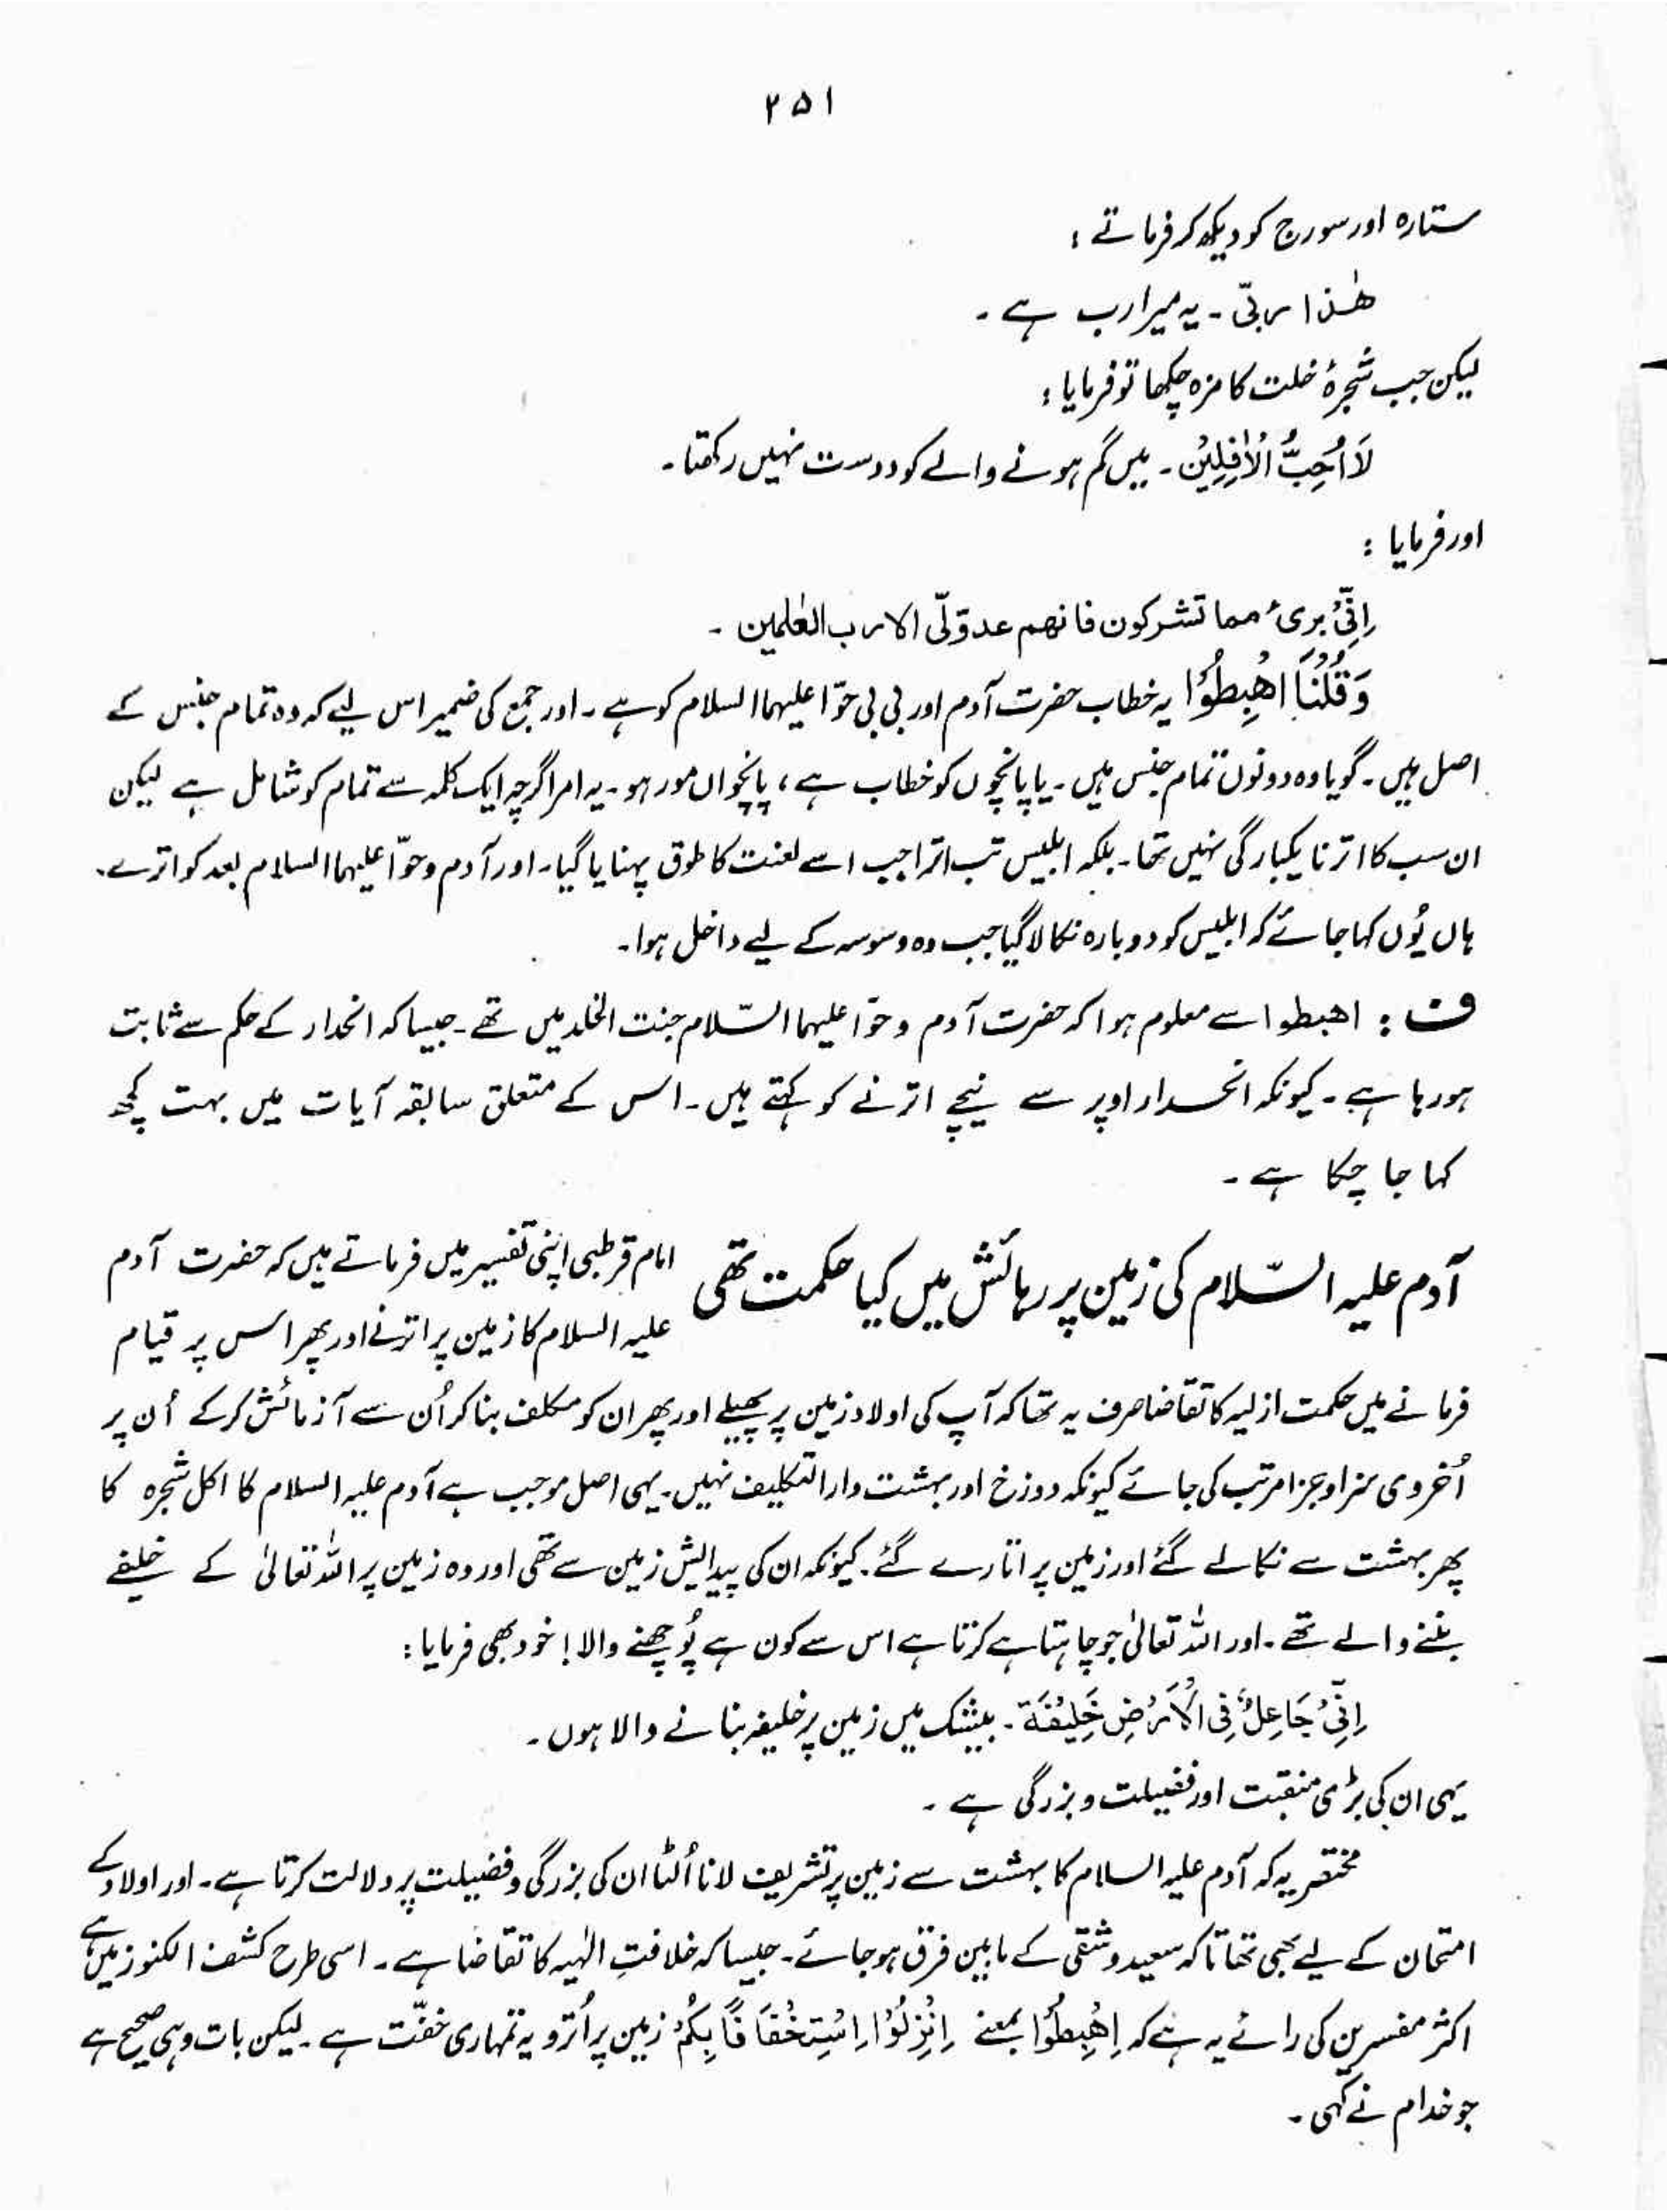 ۲۵۱
ستارہ اور سورج کو دیکھ کر فرماتے :
ھٰذا ربّی ۔ یہ میرا رب ہے ۔
لیکن جب شجرۂ خلت کا مزہ چکھا تو فرمایا :
لَا اُحِبُّ الْاٰفِلِیْن ۔ میں گم ہونے والے کو دوست نہیں رکھتا ۔
اور فرمایا :
اِنِّیْ بریٔ مما تشرکون فانھم عدوّلّی الا رب العٰلمین ۔
وَقُلْنَا اھْبِطُوْا یہ خطاب حضرت آدم اور بی بی حوّا علیہما السلام کو ہے ۔ اور جمع کی ضمیر اس لیے کہ وہ تمام جنس کے
اصل ہیں ۔ گویا وہ دونوں تمام جنس ہیں ۔ یا پانچوں کو خطاب ہے ، پانچواں مور ہو ۔ یہ امر اگرچہ ایک کلمہ سے تمام کو شامل ہے لیکن
ان سب کا اترنا یکبارگی نہیں تھا ۔ بلکہ ابلیس تب اترا جب اسے لعنت کا طوق پہنایا گیا ۔ اور آدم و حوّا علیہما السلام بعد کو اترے ۔
ہاں یُوں کہا جائے کہ ابلیس کو دوبارہ نکالا گیا جب وہ وسوسہ کے لیے داخل ہوا ۔
ف : اھبطوا سے معلوم ہوا کہ حضرت آدم و حوّا علیہما السّلام جنت الخلد میں تھے ۔ جیسا کہ انحدار کے حکم سے ثابت
ہو رہا ہے ۔ کیونکہ انحدار اوپر سے نیچے اترنے کو کہتے ہیں ۔ اس کے متعلق سابقہ آیات میں بہت کچھ
کہا جا چکا ہے ۔
آدم علیہ السّلام کی زمین پر رہائش میں کیا حکمت تھی
امام قرطبی اپنی تفسیر میں فرماتے ہیں کہ حضرت آدم
علیہ السلام کا زمین پر اترنے اور پھر اس پر قیام
فرمانے میں حکمت ازلیہ کا تقاضا صرف یہ تھا کہ آپ کی اولاد زمین پر پھیلے اور پھر ان کو مکلف بنا کر اُن سے آزمائش کرکے اُن پر
اُخروی سزا و جزا مرتب کی جائے کیونکہ دوزخ اور بہشت دار التکلیف نہیں ۔ یہی اصل موجب ہے آدم علیہ السلام کا اکل شجرہ کا
پھر بہشت سے نکالے گئے اور زمین پر اتارے گئے ۔ کیونکہ ان کی پیدائش زمین سے تھی اور وہ زمین پر اللہ تعالیٰ کے خلیفے
بننے والے تھے ۔ اور اللہ تعالیٰ جو چاہتا ہے کرتا ہے اس سے کون ہے پُوچھنے والا ! خود بھی فرمایا :
اِنِّیْ جَاعِلٌ فِی الْاَرْضِ خَلِیْفَۃً ۔ بیشک میں زمین پر خلیفہ بنانے والا ہوں ۔
یہی ان کی بڑی منقبت اور فضیلت و بزرگی ہے ۔
مختصر یہ کہ آدم علیہ السلام کا بہشت سے زمین پر تشریف لانا اُلٹا ان کی بزرگی و فضیلت پر دلالت کرتا ہے ۔ اور اولاد کے
امتحان کے لیے بھی تھا تاکہ سعید و شقی کے مابین فرق ہو جائے ۔ جیسا کہ خلافتِ الٰہیہ کا تقاضا ہے ۔ اسی طرح کشف الکنوز میں ہے
اکثر مفسرین کی رائے یہ ہے کہ اِھْبِطُوْا بمعنے اِنْزِلُوْا اِسْتِخْفَافًا بِکُمْ زمین پر اُترو یہ تمہاری خفّت ہے ۔ لیکن بات وہی صحیح ہے
جو خدام نے کہی ۔